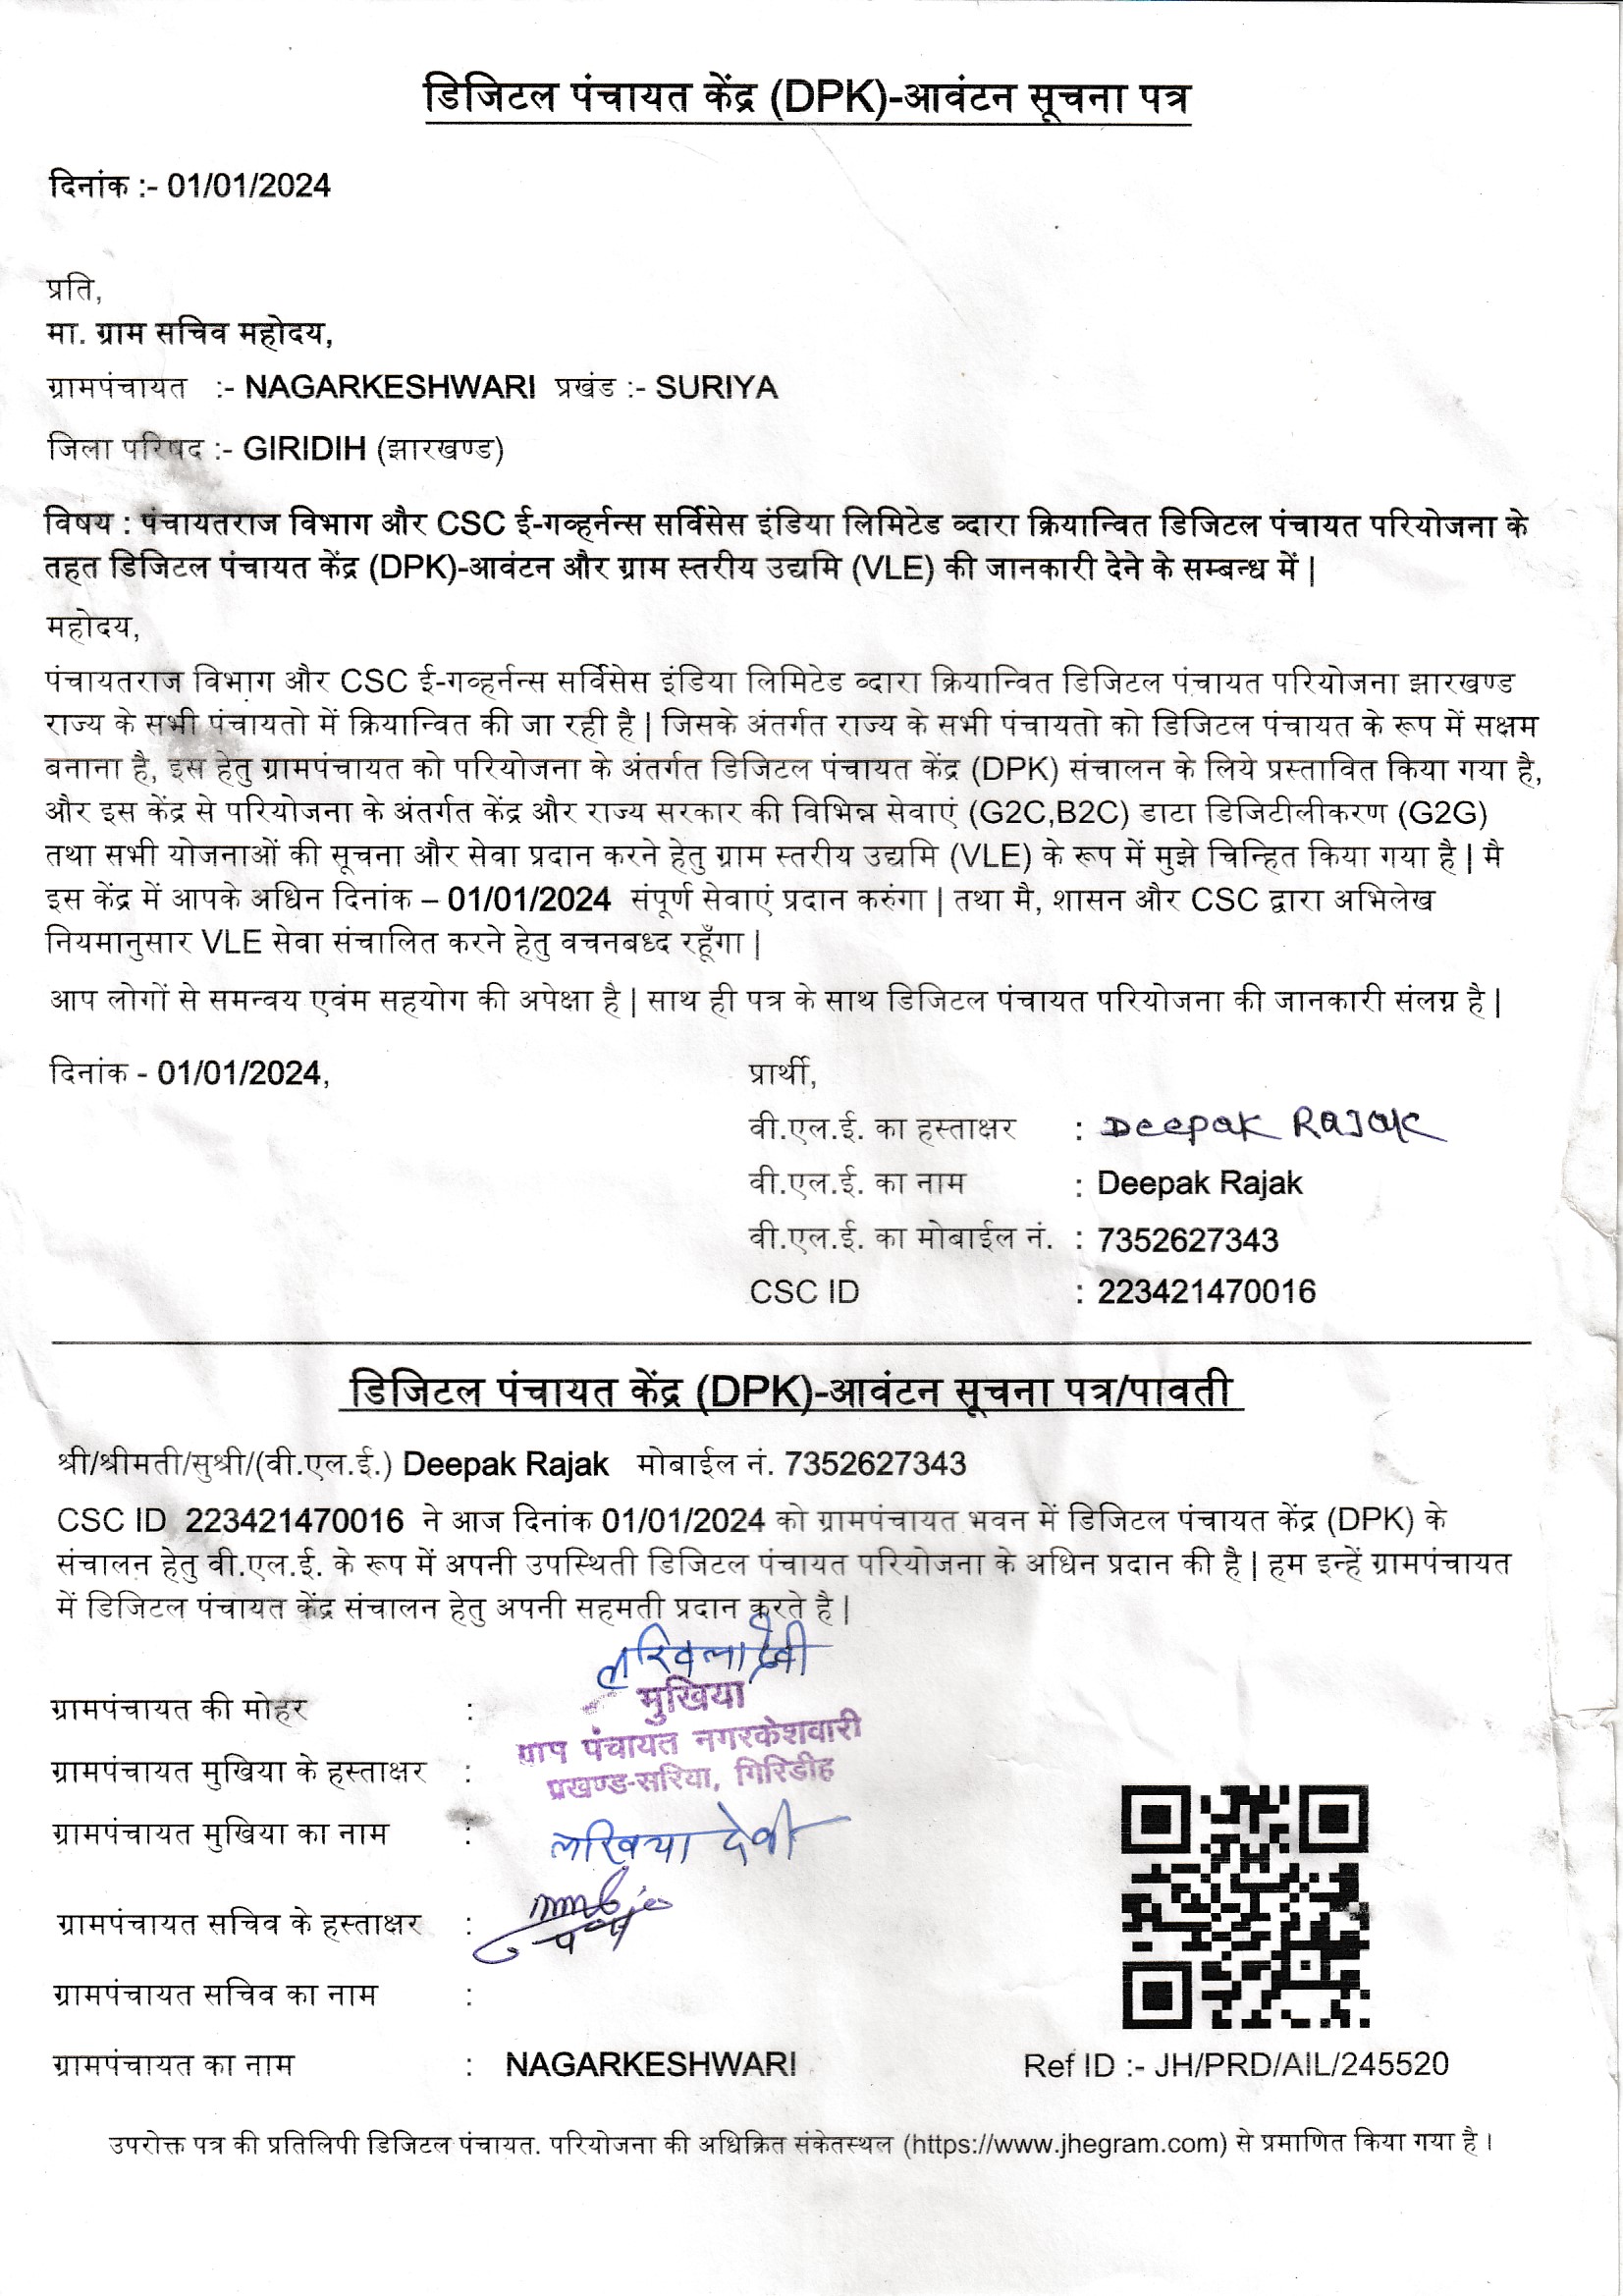 डिजिटल पंचायत केंद्र (DPK)-आवंटन सूचना पत्र
दिनांक :- 01/01/2024
प्रति,
मा. ग्राम सचिव महोदय,
ग्रामपंचायत :- NAGARKESHWARI प्रखंड :- SURIYA
जिला परिषद :- GIRIDIH (झारखण्ड)
विषय : पंचायतराज विभाग और CSC ई-गव्हर्नन्स सर्विसेस इंडिया लिमिटेड व्दारा क्रियान्वित डिजिटल पंचायत परियोजना के
तहत डिजिटल पंचायत केंद्र (DPK)-आवंटन और ग्राम स्तरीय उद्यमि (VLE) की जानकारी देने के सम्बन्ध में |
महोदय,
पंचायतराज विभाग और CSC ई-गव्हर्नन्स सर्विसेस इंडिया लिमिटेड व्दारा क्रियान्वित डिजिटल पंचायत परियोजना झारखण्ड
राज्य के सभी पंचायतो में क्रियान्वित की जा रही है | जिसके अंतर्गत राज्य के सभी पंचायतो को डिजिटल पंचायत के रूप में सक्षम
बनाना है, इस हेतु ग्रामपंचायत को परियोजना के अंतर्गत डिजिटल पंचायत केंद्र (DPK) संचालन के लिये प्रस्तावित किया गया है,
और इस केंद्र से परियोजना के अंतर्गत केंद्र और राज्य सरकार की विभिन्न सेवाएं (G2C,B2C) डाटा डिजिटीलीकरण (G2G)
तथा सभी योजनाओं की सूचना और सेवा प्रदान करने हेतु ग्राम स्तरीय उद्यमि (VLE) के रूप में मुझे चिन्हित किया गया है | मै
इस केंद्र में आपके अधिन दिनांक – 01/01/2024 संपूर्ण सेवाएं प्रदान करुंगा | तथा मै, शासन और CSC द्वारा अभिलेख
नियमानुसार VLE सेवा संचालित करने हेतु वचनबध्द रहूँगा |
आप लोगों से समन्वय एवंम सहयोग की अपेक्षा है | साथ ही पत्र के साथ डिजिटल पंचायत परियोजना की जानकारी संलग्न है |
दिनांक - 01/01/2024,
प्रार्थी,
वी.एल.ई. का हस्ताक्षर : Deepak Rajak
वी.एल.ई. का नाम : Deepak Rajak
वी.एल.ई. का मोबाईल नं. : 7352627343
CSC ID : 223421470016
डिजिटल पंचायत केंद्र (DPK)-आवंटन सूचना पत्र/पावती
श्री/श्रीमती/सुश्री/(वी.एल.ई.) Deepak Rajak मोबाईल नं. 7352627343
CSC ID 223421470016 ने आज दिनांक 01/01/2024 को ग्रामपंचायत भवन में डिजिटल पंचायत केंद्र (DPK) के
संचालन हेतु वी.एल.ई. के रूप में अपनी उपस्थिती डिजिटल पंचायत परियोजना के अधिन प्रदान की है | हम इन्हें ग्रामपंचायत
में डिजिटल पंचायत केंद्र संचालन हेतु अपनी सहमती प्रदान करते है |
देवी
ग्रामपंचायत की मोहर : मुखिया
ग्राप पंचायत नगरकेशवारी
ग्रामपंचायत मुखिया के हस्ताक्षर : प्रखण्ड-सरिया, गिरिडीह
ग्रामपंचायत मुखिया का नाम : लखिया देवी
ग्रामपंचायत सचिव के हस्ताक्षर :
ग्रामपंचायत सचिव का नाम :
ग्रामपंचायत का नाम : NAGARKESHWARI
Ref ID :- JH/PRD/AIL/245520
उपरोक्त पत्र की प्रतिलिपी डिजिटल पंचायत. परियोजना की अधिक्रित संकेतस्थल (https://www.jhegram.com) से प्रमाणित किया गया है ।